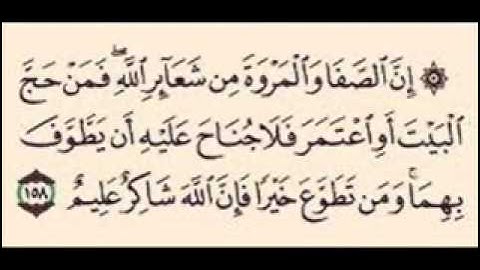 ۞ إِنَّ ٱلصَّفَا وَٱلْمَرْوَةَ مِن شَعَآئِرِ ٱللَّهِ ۖ فَمَنْ حَجَّ
ٱلْبَيْتَ أَوِ ٱعْتَمَرَ فَلَا جُنَاحَ عَلَيْهِ أَن يَطَّوَّفَ
بِهِمَا ۚ وَمَن تَطَوَّعَ خَيْرًا فَإِنَّ ٱللَّهَ شَاكِرٌ عَلِيمٌ ١٥٨